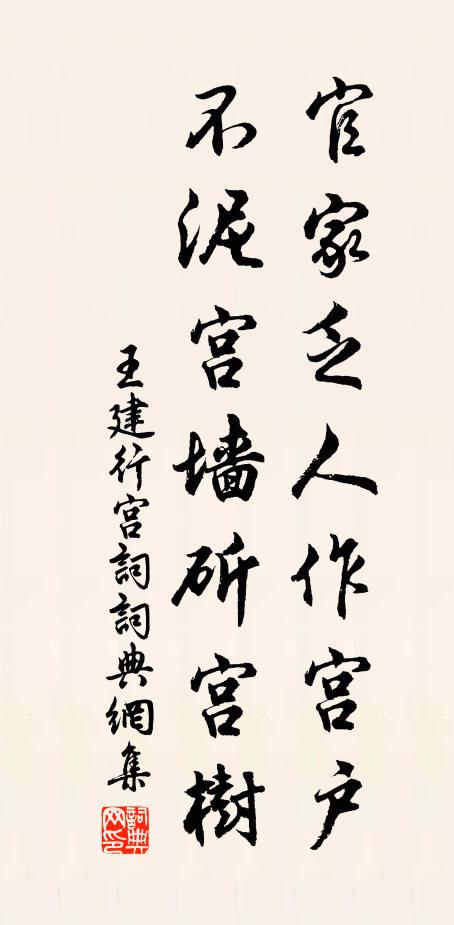 官家乏人作宫户
不泥宫墙斫宫樹
王建行宫詞詞典網集
詞典
网印